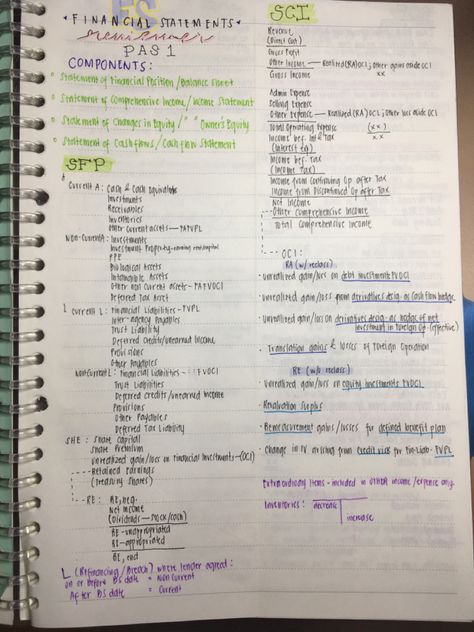 FS
* FINANCIAL STATEMENTS *
reviewer
PAS 1
COMPONENTS:
Statement of Financial Position / Balance Sheet
Statement of Comprehensive Income / Income Statement
Statement of Changes in Equity / " " Owner's Equity
Statement of Cashflows / Cashflow Statement
SFP
Current A: Cash & Cash Equivalents
Investments
Receivables
Inventories
Other current assets - FATVPL
Non-CurrentA: Investments
Investment Property
PPE
Biological Assets
Intangible Assets
Other non current assets - FATVOCI
Deferred Tax Asset
L Current L: Financial Liabilities - FVPL
Inter-agency Payables
Trust Liability
Deferred Credits/Unearned Income
Provisions
Other Payables
NonCurrent L: Financial Liabilities - FVOCI
Trust Liabilities
Deferred credits/unearned income
Provisions
Other Payables
Deferred Tax Liability
SHE: Share Capital
Share Premium
Unrealized gain/loss on Financial Investments - (OCI)
Retained Earnings
(Treasury Shares)
RE: RE, beg.
Net Income
(Dividends - stock/cash)
RE - unappropriated
RE - appropriated
RE, end
L (Refinancing / Breach) where lender agreed:
on or before BS date = Non Current
After BS date = Current
SCI
Revenue
(Direct Cost)
Gross Profit
Other Income - Realized (RA) OCI ; other gains aside OCI
Gross Income xx
Admin Expense
Selling Expense
Other Expense - Realized (RA) OCI ; other loss aside OCI
Total Operating Expense (xx)
Income bef. Int & Tax xx
(Interest Exp)
Income bef. Tax
(Income Tax)
Income from Continuing Op after Tax
Income from Discontinued Op after Tax
Net Income
Other Comprehensive Income
Total Comprehensive Income
OCI:
RA (w/ reclass)
- Unrealized gain/loss on debt investments FVOCI
- Unrealized gain/loss from derivatives desig. as cash flow hedge
- Unrealized gain/loss on derivatives desig. as hedges of net
investment in foreign op (effective)
- Translation gains & losses of Foreign Operation
RE (w/o reclass)
- Unrealized gain/loss on equity investments FVOCI
- Revaluation Surplus
- Remeasurement gains/losses for defined benefit plan
- Change in FV arising from credit risk for fin. liab. - FVPL
Extraordinary Items - included in OTHER income/expense only
Inventories: decrease
increase